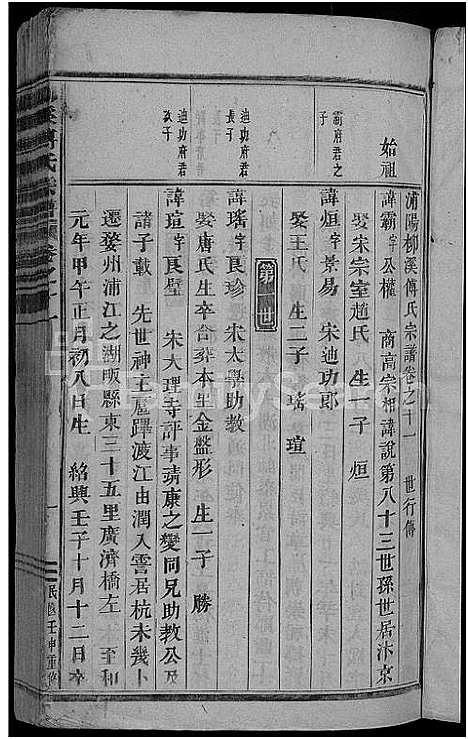 浦陽柳溪傅氏宗譜卷之十一 世行傳
始祖
諱霸字公權 商高宗相諱說第八十三世孫世居汴京
娶宋宗室趙氏 生一子 烜
霸府君之
子
諱烜字景易 宋迪功郎
娶王氏 生二子 瑤 瑄
第一世
迪功府君
長子
諱瑤字良珍 宋太學助教
娶唐氏生卒合葬本里金盤形 生一子 勝
迪功府君
次子
諱瑄字良璧 宋大理寺評事靖康之變同兄助教公及
諸子載 先世神主扈蹕渡江由潤入霅居杭未幾卜
遷婺州浦江之湖畈縣東三十五里廣濟橋左 宋至和
元年甲午正月初八日生 紹興壬子十月十二日卒
卷之十一
一
民國壬申重修